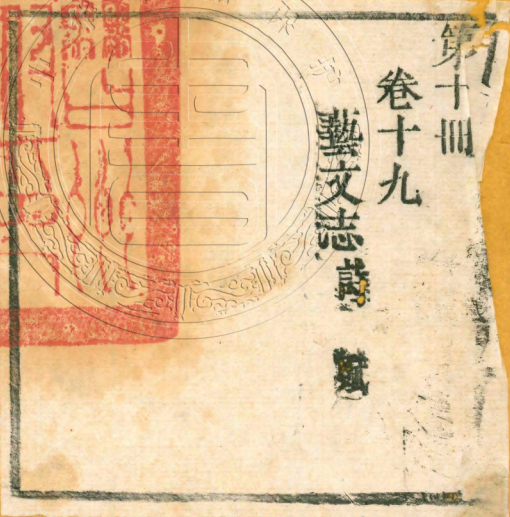 第十冊
卷十九
藝文志 詩 賦